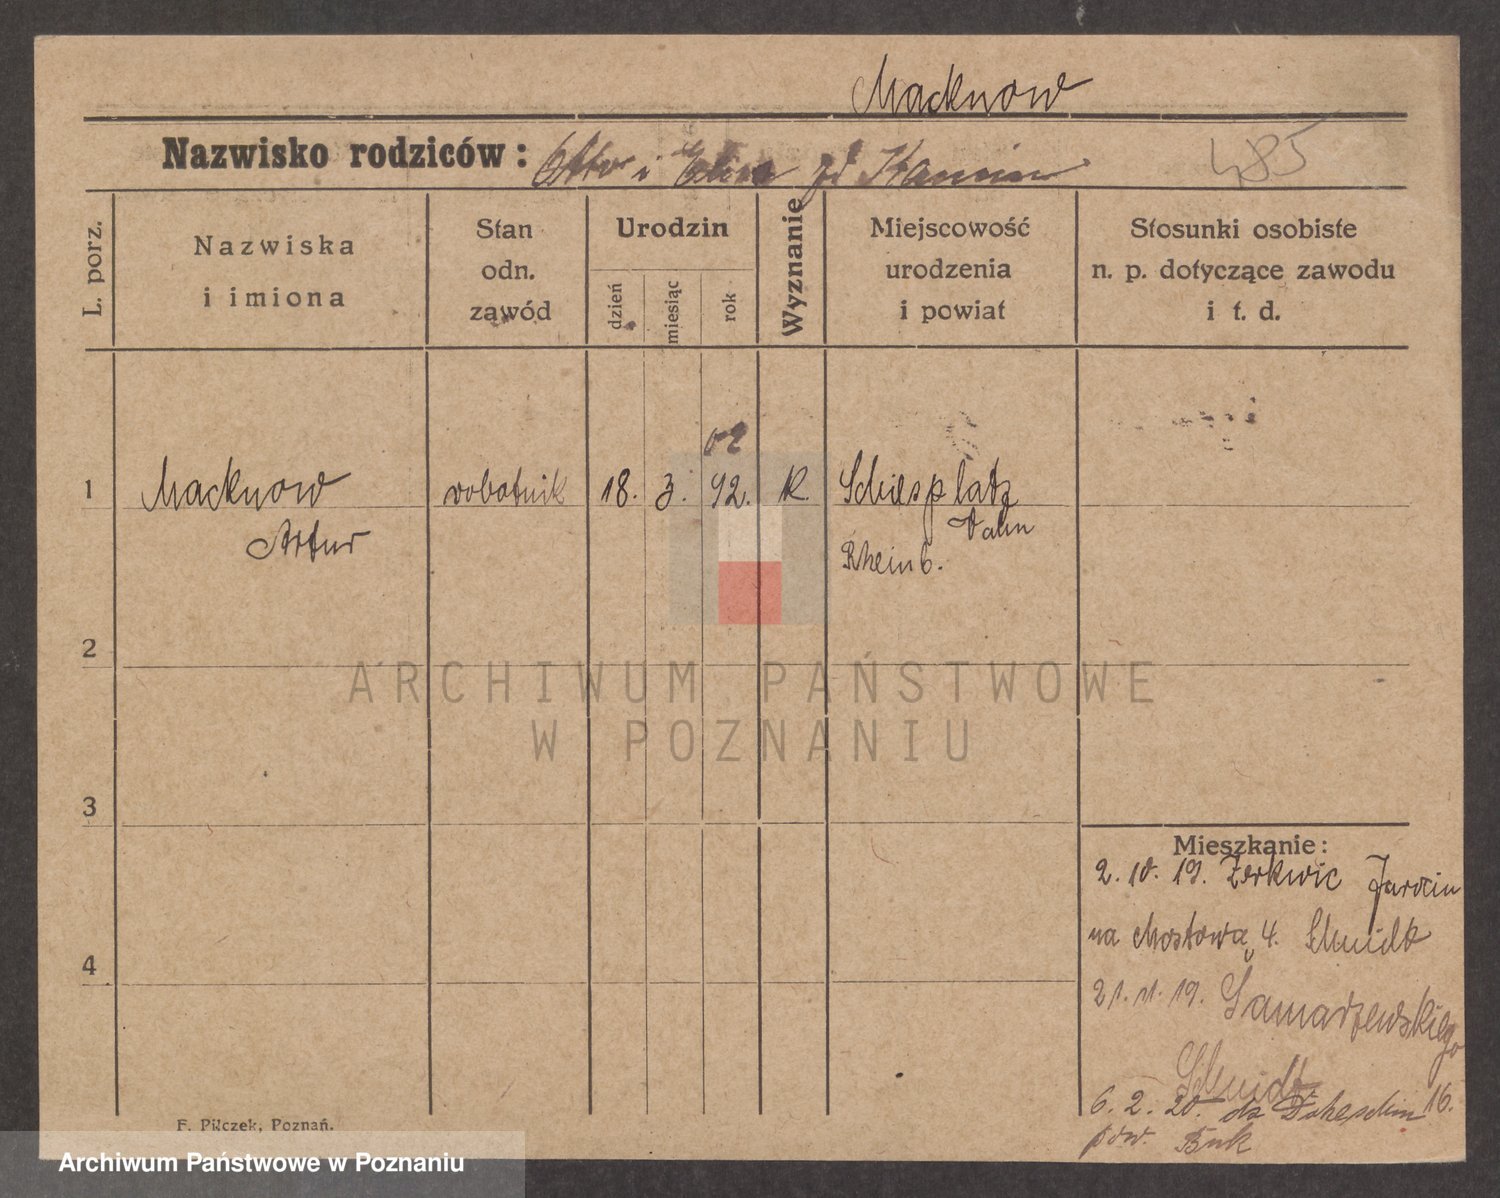 Macknow
Nazwisko rodziców: Otto i
485
L. porz.
Nazwiska
i imiona
Stan
odn.
zawód
Urodzin
dzień
miesiąc
rok
Wyznanie
Miejscowość
urodzenia
i powiat
Stosunki osobiste
n. p. dotyczące zawodu
i t. d.
02
1 Macknow robotnik 18. 3. 92. K. Schiesplatz
Artur
Rheinb.
2
ARCHIWUM PAŃSTWOWE
W POZNANIU
3
Mieszkanie:
2. 10. 19. Zerkwic Jarocin
na Mostowa 4. Schmidt
4
21. 11. 19. Samarzewskiego
Schmidt 16.
6. 2. 20. do
pow. Buk
F. Pilczek, Poznań.
Archiwum Państwowe w Poznaniu